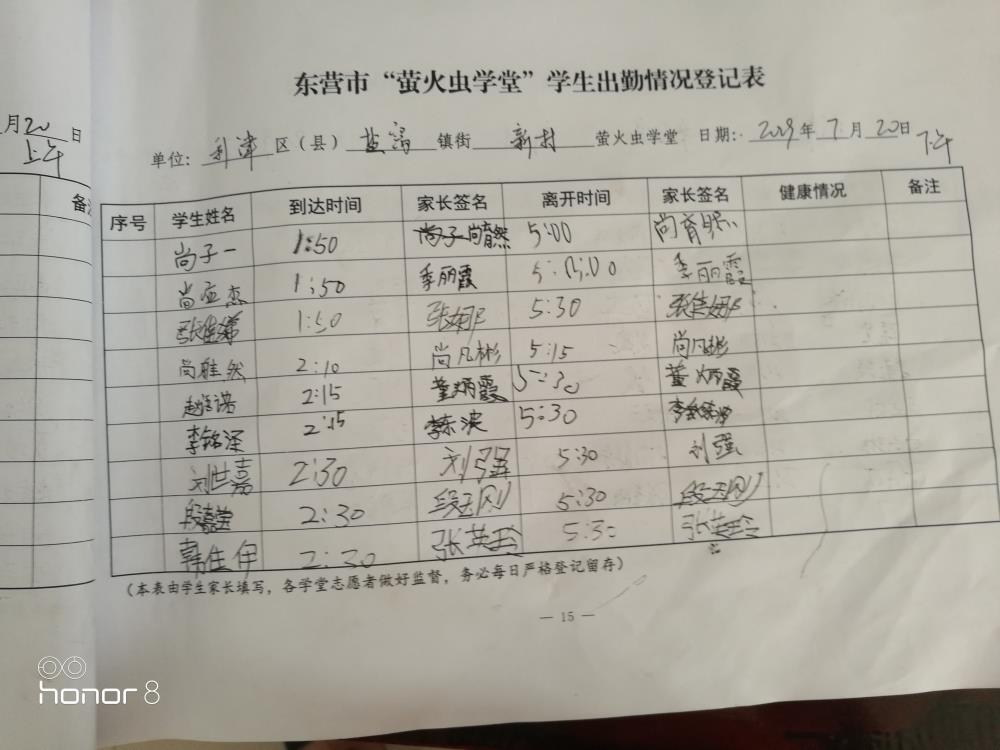 月20日
上午
备注
东营市“萤火虫学堂”学生出勤情况登记表
单位：利津区（县）盐窝镇街 新村 萤火虫学堂 日期：2019年7月20日下午
序号 学生姓名 到达时间 家长签名 离开时间 家长签名 健康情况 备注
尚子一 1:50 5:00
尚亚杰 1:50 季丽霞 5:00 季丽霞
1:50 5:30
尚雅然 2:10 尚凡彬 5:15 尚凡彬
2:15 董炳霞 5:30 董炳霞
李铭泽 2:15 5:30
刘世嘉 2:30 刘强 5:30 刘强
2:30 5:30
韩佳伊 2:30 张英玲 5:30 张英玲
（本表由学生家长填写，各学堂志愿者做好监督，务必每日严格登记留存）
— 15 —
honor 8